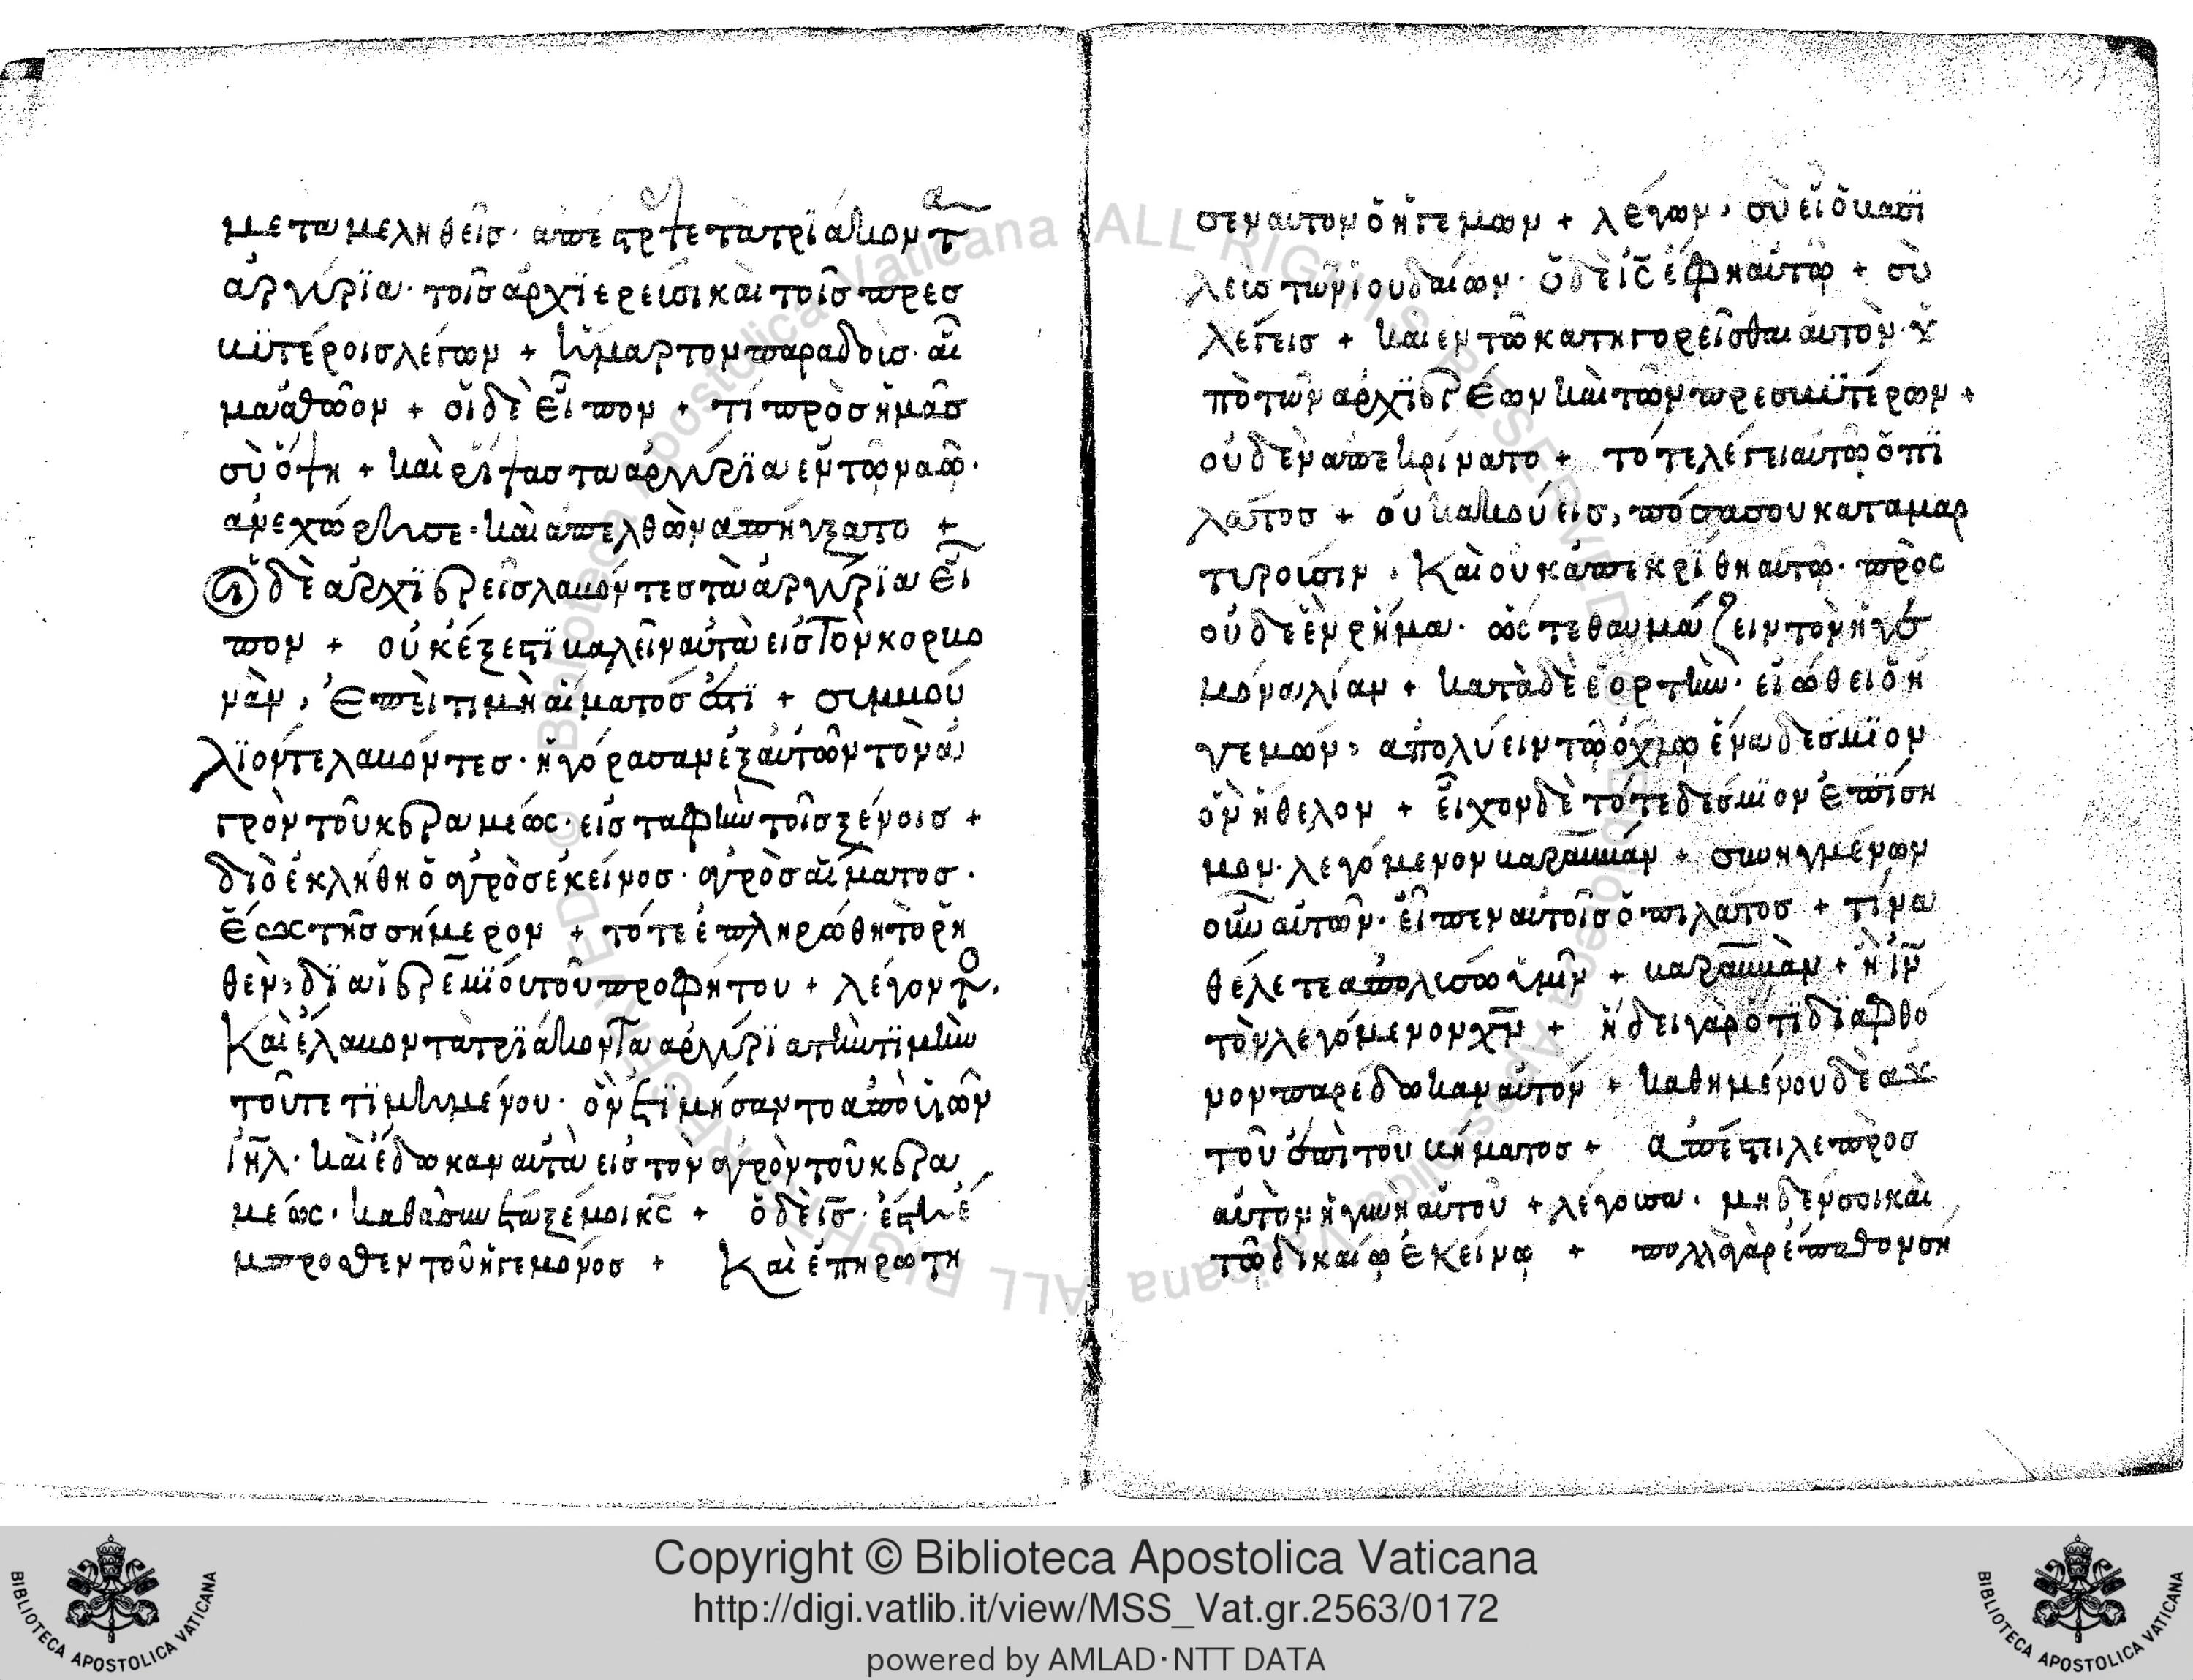 μεταμεληθεὶσ· ἀπέστρεψε τὰ τρϊάκοντα
ἀργύρϊα· τοῖσ ἀρχϊερεῦσι καὶ τοῖσ πρεσ
βϋτέροισ λέγων + ἥμαρτον παραδοὺσ· αἷ
μα ἀθῶον + οἱ δὲ εἶπον + τί πρὸσ ἡμᾶσ
σὺ ὄψη + καὶ ῥίψασ τὰ ἀργύρϊα ἐν τῶ ναῶ·
ἀνεχώρησε· καὶ ἀπελθὼν ἀπήγξατο +
Οἱ δὲ ἀρχϊερεῖσ λαβόντεσ τὰ ἀργύρϊα εἶ
πον + οὐκ έξεστϊ βαλεῖν αὐτὰ εἰσ τὸν κορβο
νὰν, ἐπεὶ τιμὴ αἵματόσ ἐστϊ + συμβού
λϊον τε λαβόντεσ· ἠγόρασαν ἐξ αὐτῶν τὸν ἀ
γρὸν τοῦ κεραμέωσ· εἰσ ταφὴν τοῖσ ξένοισ +
διὸ ἐκλήθη ὁ ἀγρὸσ ἐκείνοσ· ἀγρὸσ αἵματοσ·
ἕωσ τῆσ σήμερον + τότε ἐπληρώθη τὸ ρη
θὲν, δϊα ϊερεμϊου τοῦ προφήτου + λέγοντος,
Καὶ ἔλαβον τὰ τρϊάκοντα ἀργύρϊα τὴν τϊμὴν
τοῦ τετϊμημένου· ὃν ἐτϊμήσαντο ἀπὸ υἱῶν
ἰηλ· καὶ ἔδωκαν αὐτὰ εἰσ τὸν ἀγρὸν τοῦ κερα
μέωσ· καθὰ συνέταξέ μοι κσ + ὁ δὲ ισ· ἔστη ἔ
μπροσθεν τοῦ ἡγεμόνοσ + Καὶ ἐπηρώτη
σεν αυτὸν ὁ ἡγεμων + λέγων, σὺ εἶ ὁ βασϊ
λεὺσ τῶν ϊουδαίων· ὁ δὲ ισ ἔφη αὐτῶ + σὺ
λέγεισ + καὶ ἐν τῶ κατηγορεῖσθαι αὐτὸν· ὑ
πὸ τῶν ἀρχϊερέων καὶ τῶν πρεσβϋτέρων +
οὐδὲν ἀπεκρίνατο + τότε λέγει αὐτῶ ὁ πϊ
λᾶτοσ + οὐκ ακούεισ, πόσα σου καταμαρ
τυροῦσιν, Καὶ οὐκ ἀπεκρϊθη αὐτῶ· πρὸσ
οὐδὲ ἓν ρῆμα· ὥστε θαυμάζειν τὸν ἡγε
μόνα λίαν + κατὰ δὲ ἑορτὴν· εἰώθει ὁ ἡ
γεμών, ἀπολύειν τῶ ὄχλω ἕνα δέσμϊον
ὃν ἤθελον + εἶχον δὲ τότε δέσμϊον ἐπϊση
μον· λεγόμενον βαραββάν + συνηγμένων
οὖν αὐτῶν· εἶπεν αὐτοῖσ ὁ πιλάτοσ + τίνα
θέλετε απολυσω ὑμῖν + βαραββὰν + ἢ ιν
τὸν λεγόμενον χν + ἤδει γὰρ ὅτϊ δϊα φθό
νον παρέδωκαν αὐτόν + καθημένου δὲ αυ
τοῦ ἐπὶ τοῦ βήματοσ + ἀπέστειλε πρὸσ
αὐτὸν ἡ γυνὴ αὐτοῦ + λέγουσα· μηδέν σοι καὶ
τῶ δικαίω ἐκείνω + πολλὰ γὰρ ἔπαθον ση